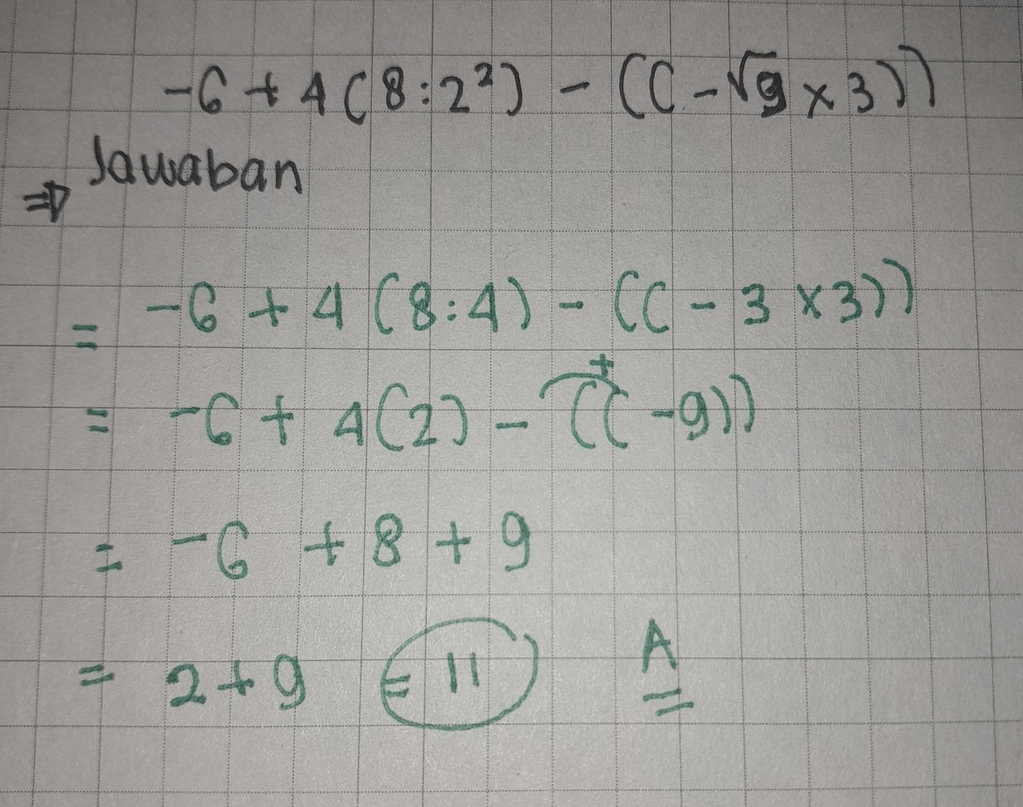 -6 + 4 (8 : 2²) - ((-√9 × 3))
⇒ Jawaban
= -6 + 4 (8 : 4) - ((-3 × 3))
+
= -6 + 4(2) - ((-9))
= -6 + 8 + 9
= 2 + 9 = 11 A